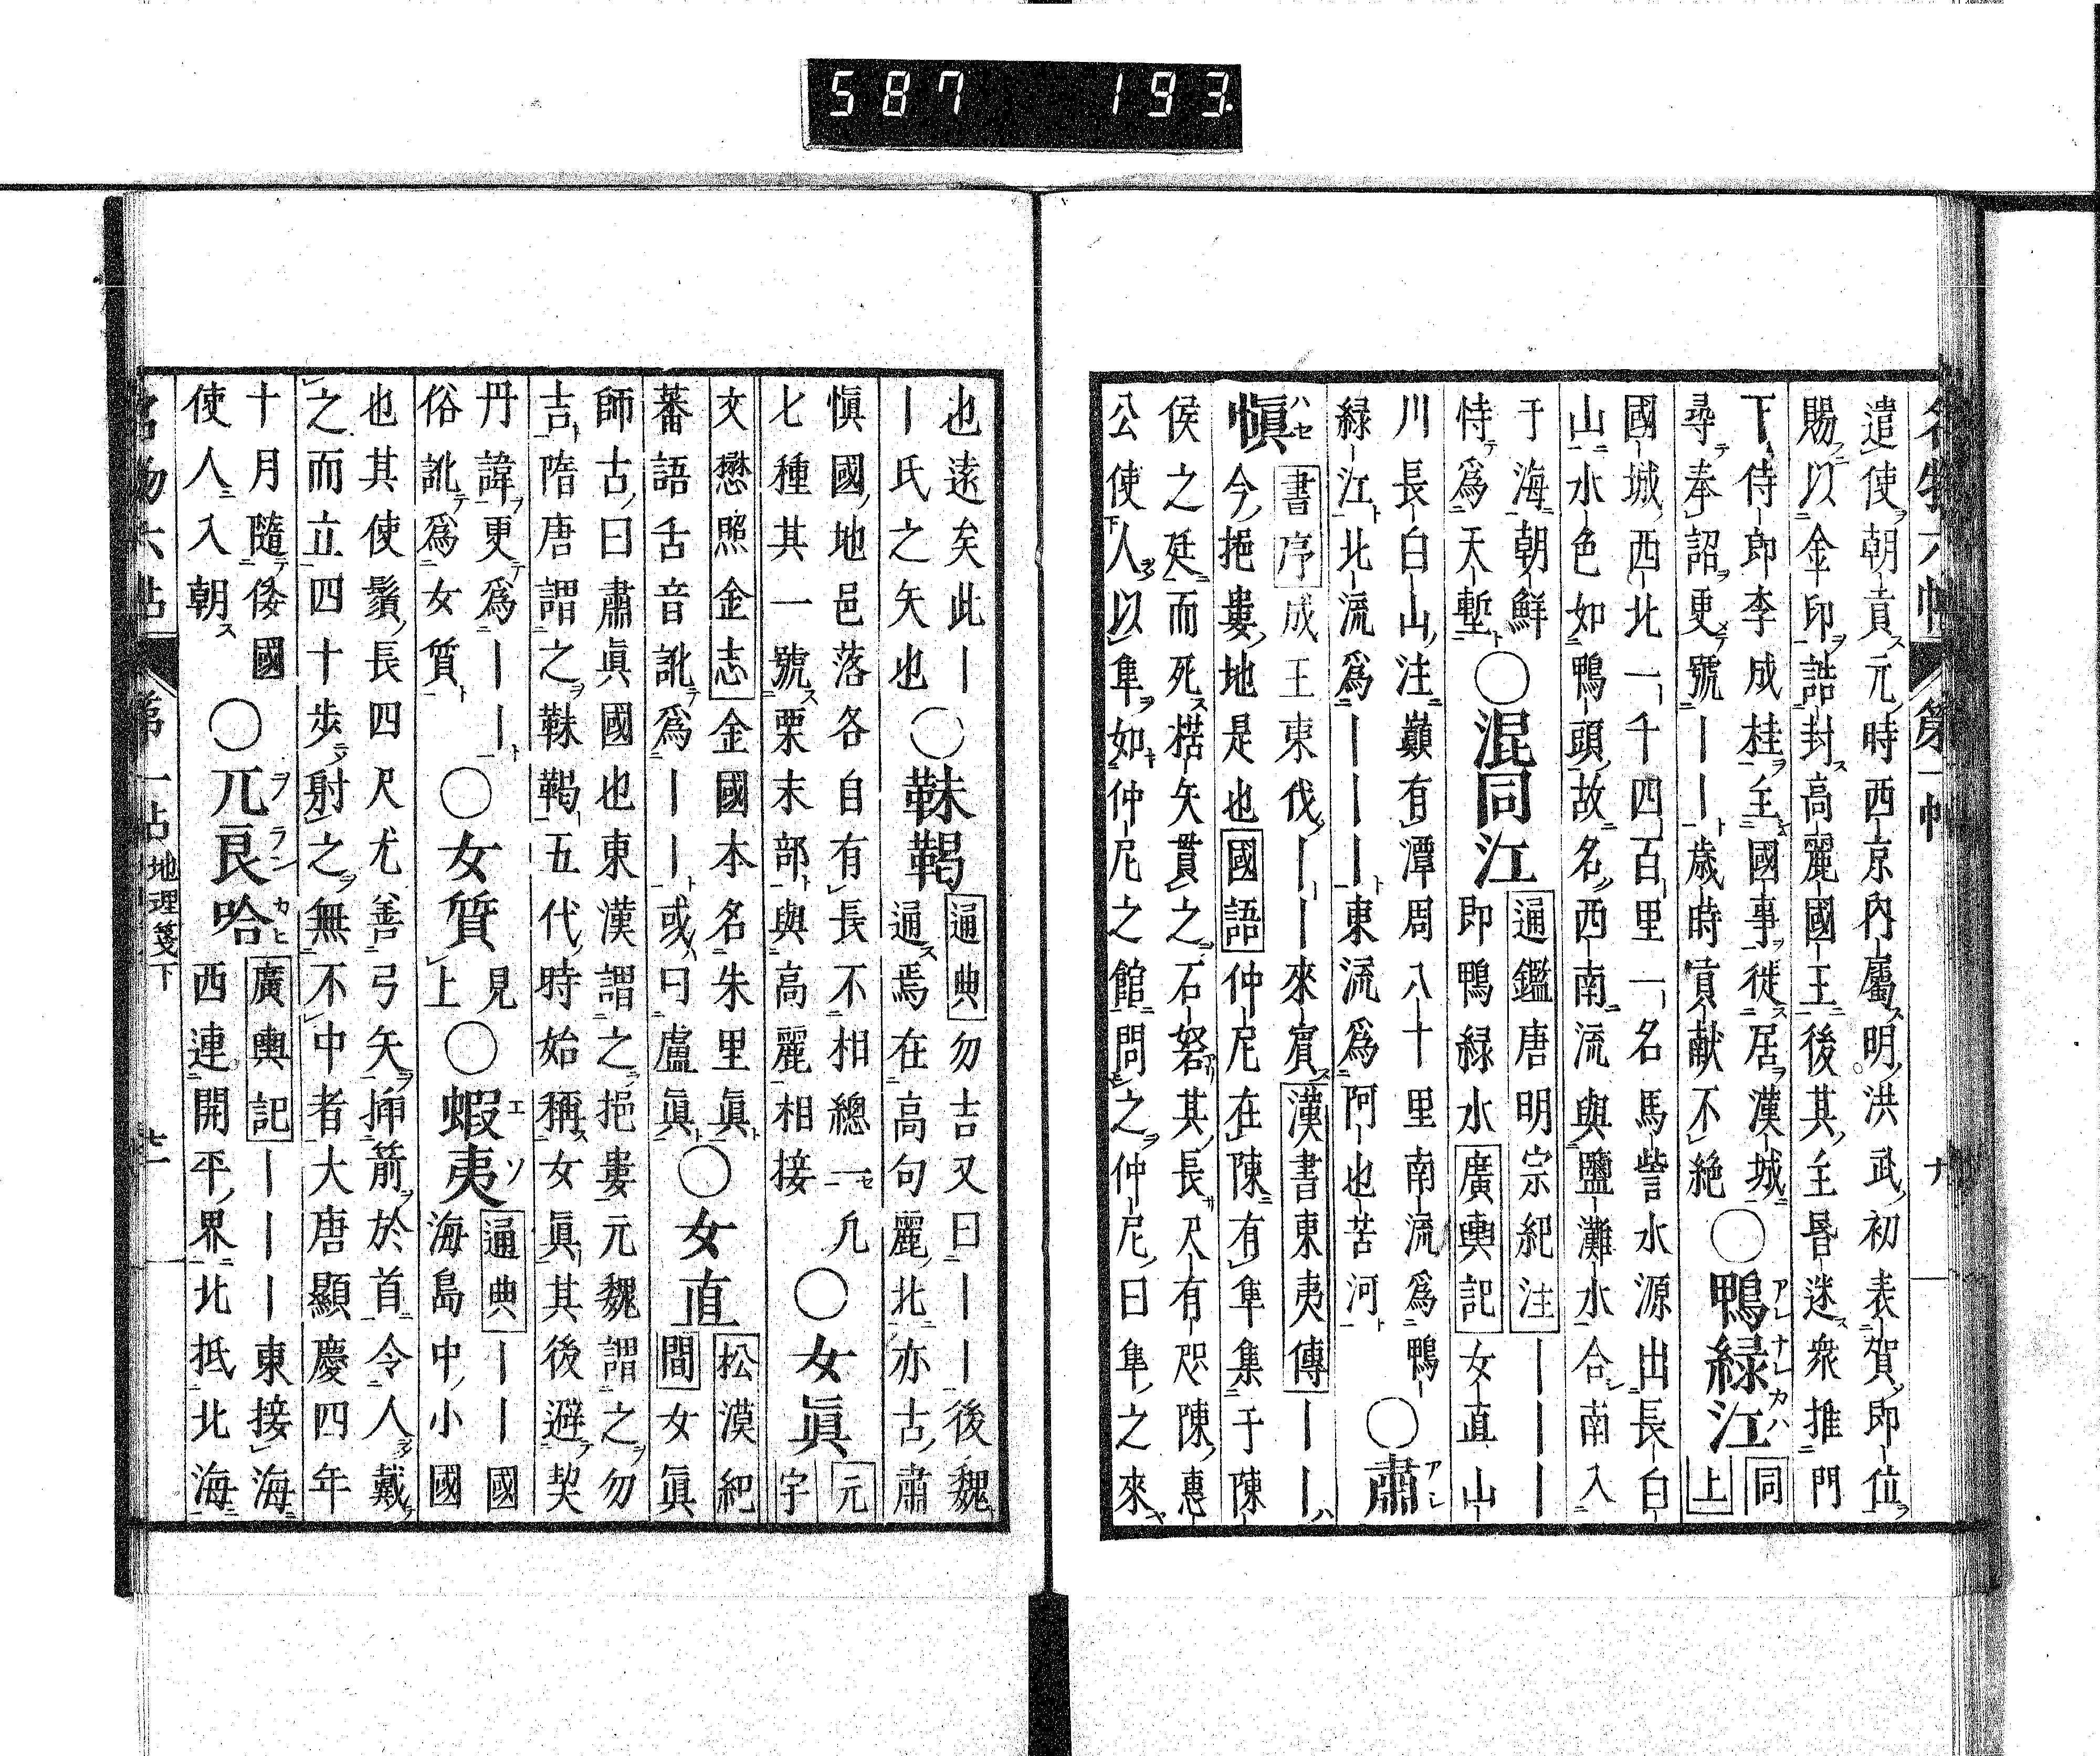 587 193
遣使朝貢元時西京內屬明洪武初表賀即位
賜以金印誥封高麗國王後其主昏迷衆推門
下侍郎李成桂主國事徙居漢城
尋奉詔更號丨丨歲時貢献不絶
○鴨緑江
アレナレカハ
同
上
國城西北一千四百里一名馬訾水源出長白
山水色如鴨頭故名西南流與鹽灘水合南入
于海朝鮮
恃爲天塹
○混同江
通鑑唐明宗紀注丨丨丨
即鴨緑水廣輿記女直山
川長白山注巓有潭周八十里南流爲鴨
緑江北流爲丨丨丨東流爲阿也苦河
○肅
アレ
愼
ハセ
書序成王東伐丨丨來賓漢書東夷傳丨丨
今挹婁地是也國語仲尼在陳有隼集于陳
侯之廷而死楛矢貫之石砮其長尺有咫陳惠
公使人以隼如仲尼之館問之仲尼曰隼之來
也遠矣此丨
丨氏之矢也
○靺鞨
通典勿吉又曰丨丨後魏
通焉在高句麗北亦古肅
愼國地邑落各自有長不相總一凢
七種其一號栗末部與高麗相接
○女眞
元
宇
文懋照金志金國本名朱里眞
蕃語舌音訛爲丨丨或曰盧眞
○女直
松漠紀
間女眞
師古曰肅眞國也東漢謂之挹婁元魏謂之勿
吉隋唐謂之靺鞨五代時始稱女眞其後避契
丹諱更爲丨丨
俗訛爲女質
○女質
見
上
○蝦夷
エソ
通典丨丨國
海島中小國
也其使鬚長四尺尤善弓矢挿箭於首令人戴
之而立四十步射之無不中者大唐顯慶四年
十月隨倭國
使人入朝
○兀良哈
ヲランカヒ
廣輿記丨丨丨東接海
西連開平界北抵北海
地理箋下